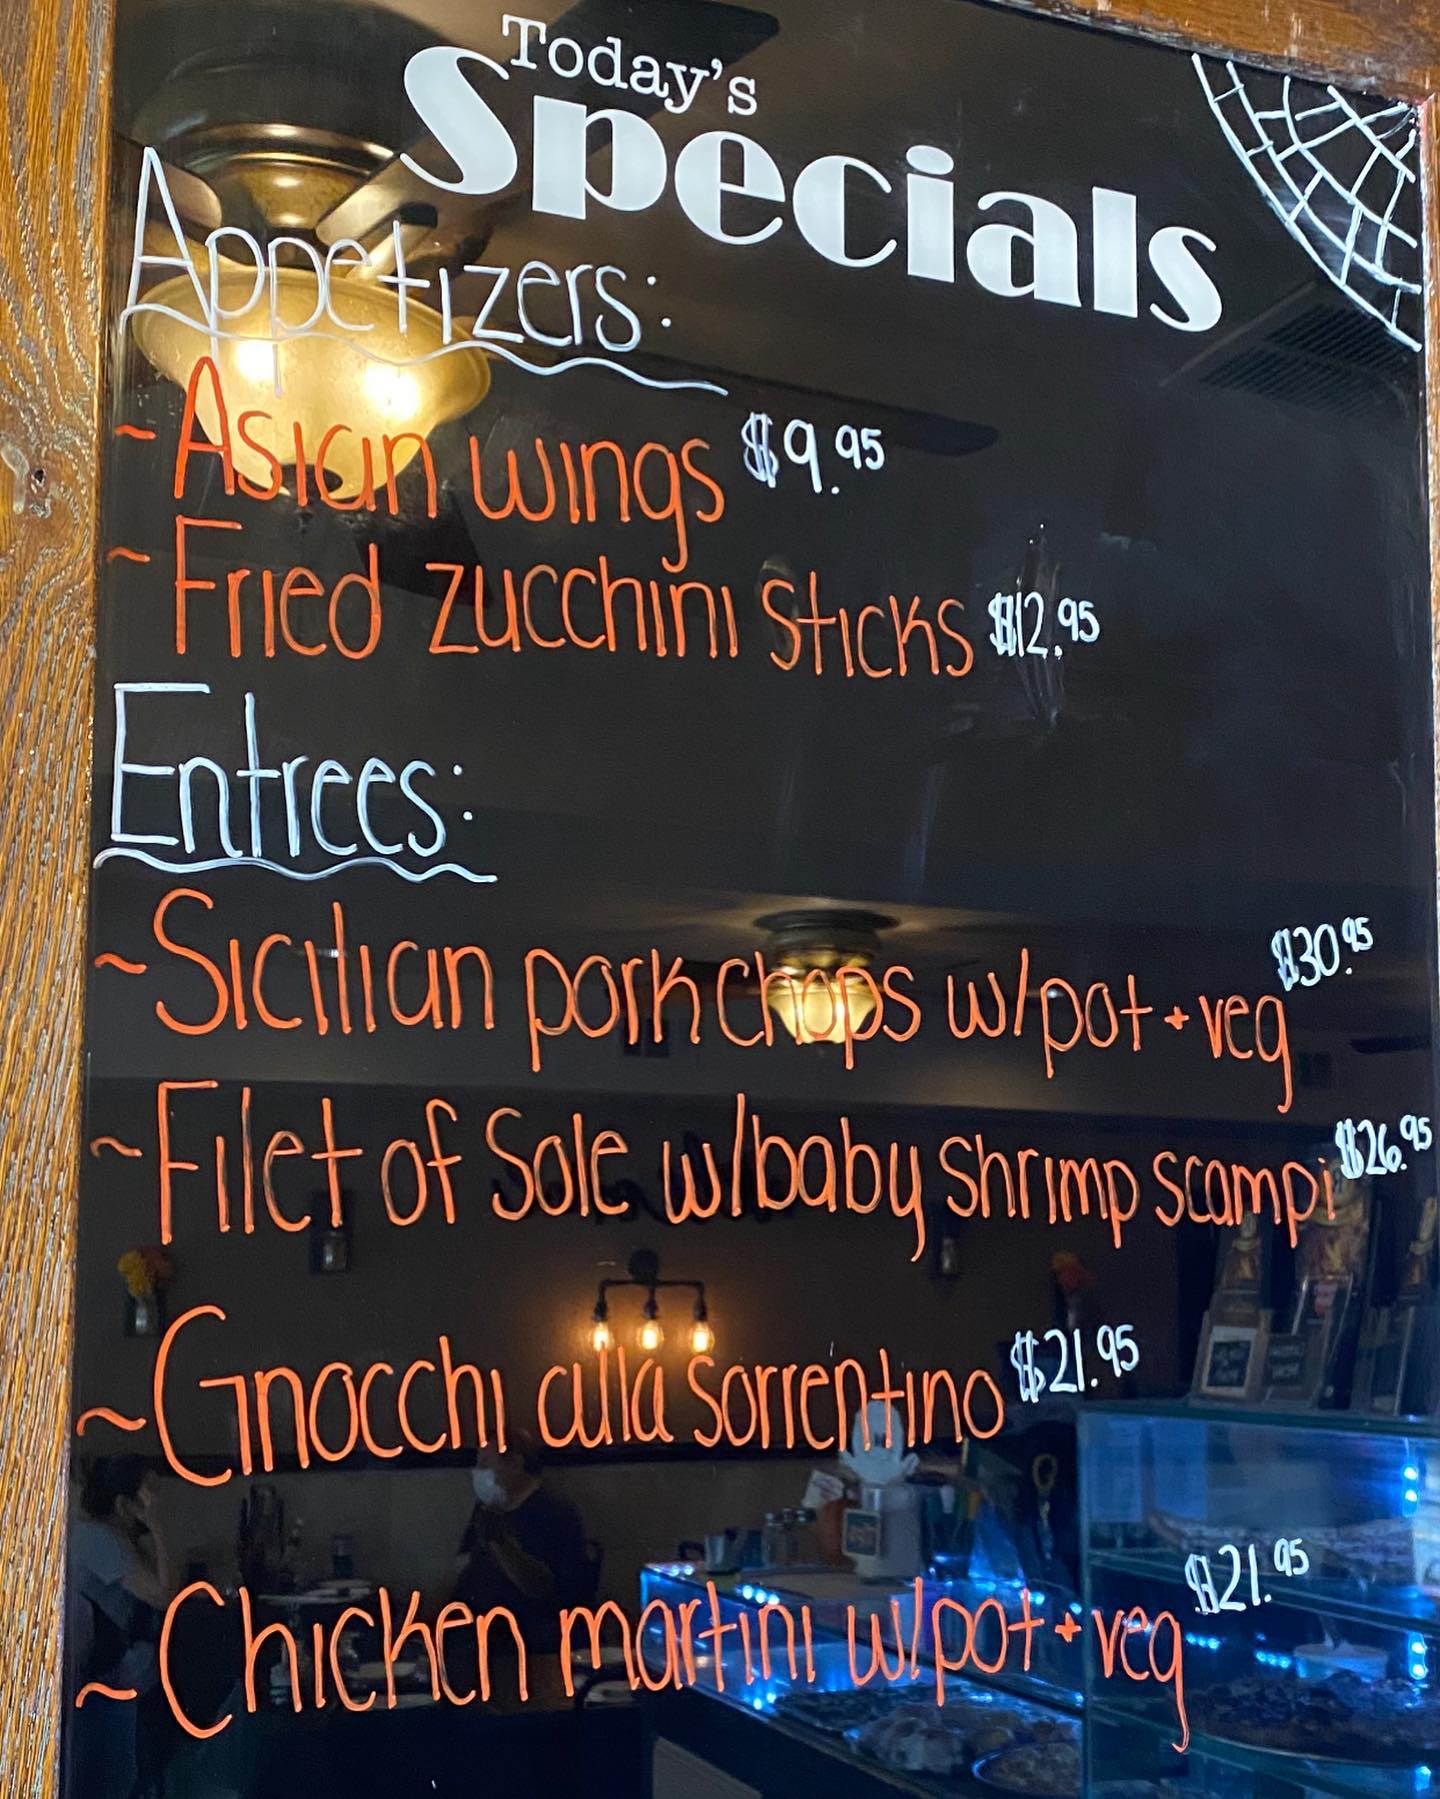 Today's
Specials
Appetizers:
~ Asian wings $9.95
~ Fried zucchini sticks $12.95
Entrees:
~ Sicilian pork chops w/pot + veg $30.95
~ Filet of Sole w/baby shrimp scampi $26.95
~ Gnocchi alla sorrentino $21.95
~ Chicken martini w/pot + veg $21.95